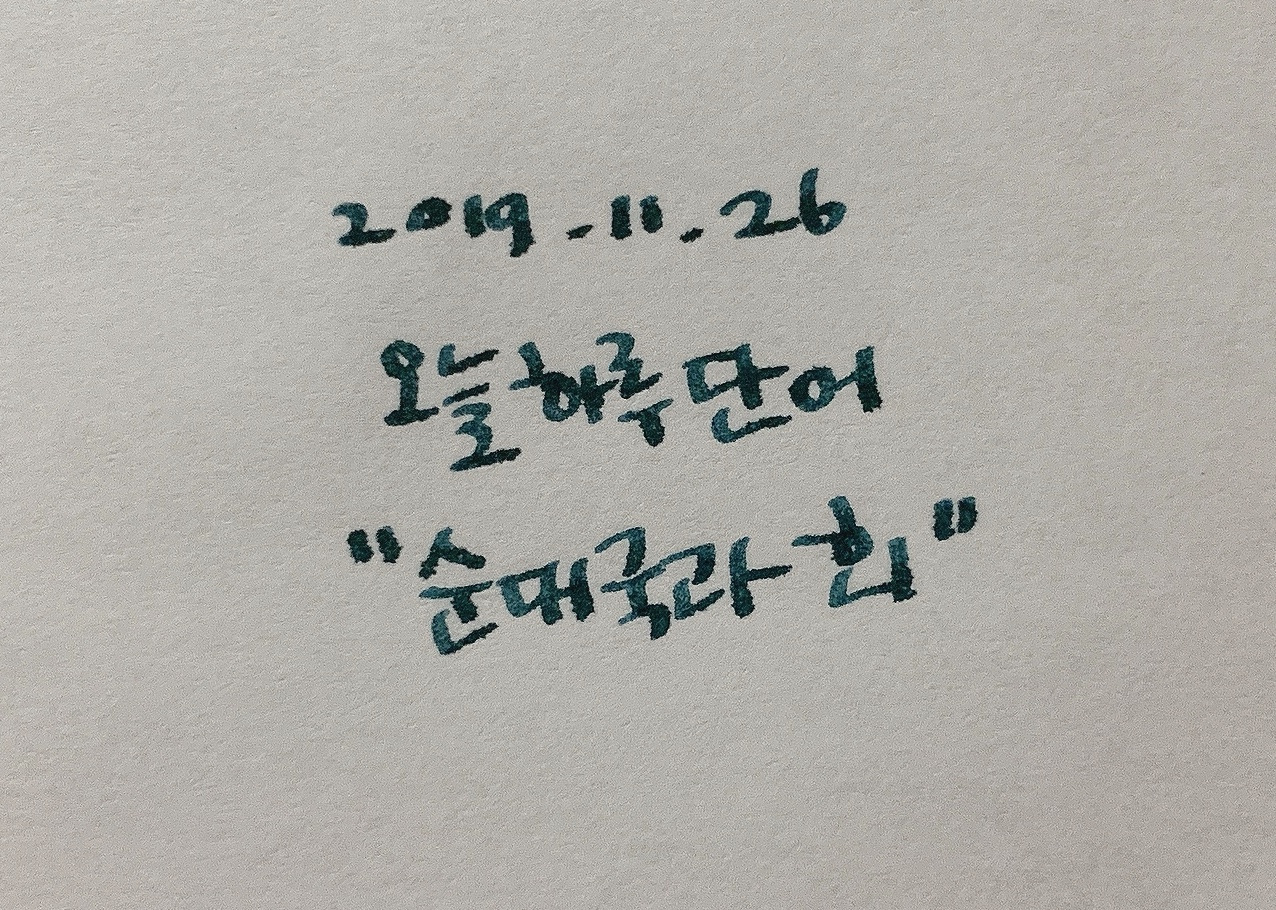 2019.11.26
오늘 하루 단어
"순대국과 회"